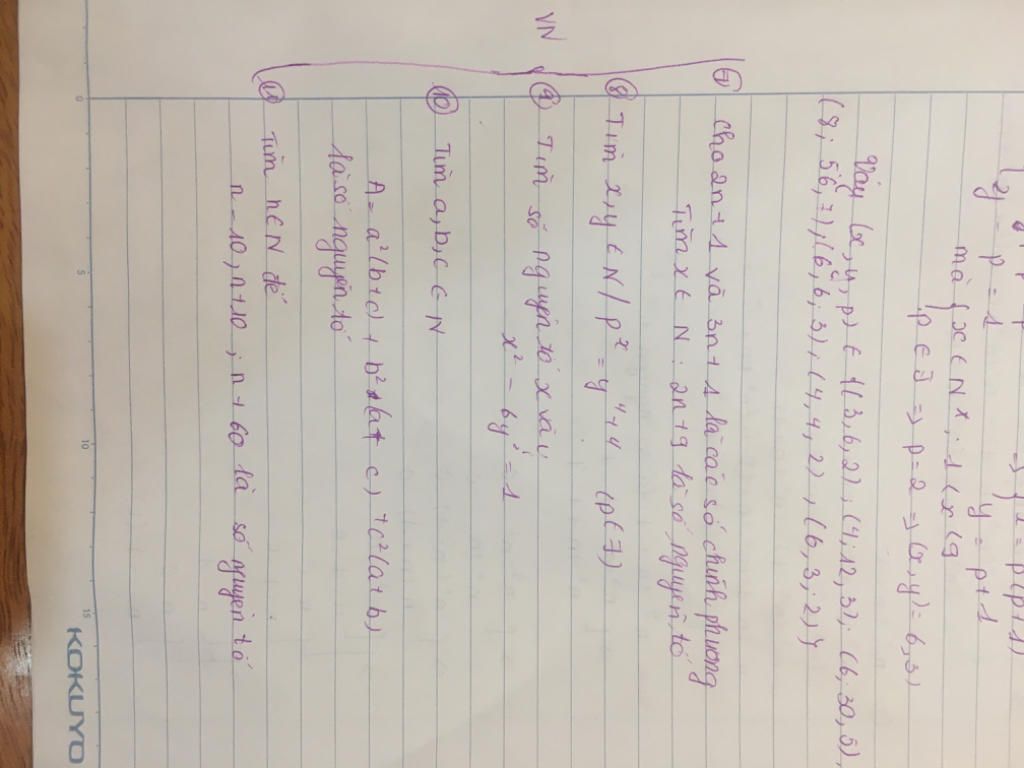 2y = p = 1
=> x = p(p+1)
y = p+1
mà x ∈ N*, 1 < x < 9
p ∈ J => p = 2 => (x,y) = 6,3)
Vậy (x, y, p) ∈ {(3,6,2), (4,12,3); (6,30,5),
(8; 56,7), (6,6,3), (4,4,2), (6,3,2)}
VN
⑦ Cho 2n+1 và 3n+1 là các số chính phương
Tìm x ∈ N : 2n+9 là số nguyên tố
⑧ Tìm x, y ∈ N / p^x = y^4 + 4 (p(J)
⑨ Tìm số nguyên tố x và y
x² - 6y² = 1
⑩ Tìm a, b, c ∈ N
A = a²(b+c) + b²(a+c) + c²(a+b)
là số nguyên tố
Tìm n ∈ N để
n-10, n+10; n+60 là số nguyên tố
0
5
10
15
KOKUYO